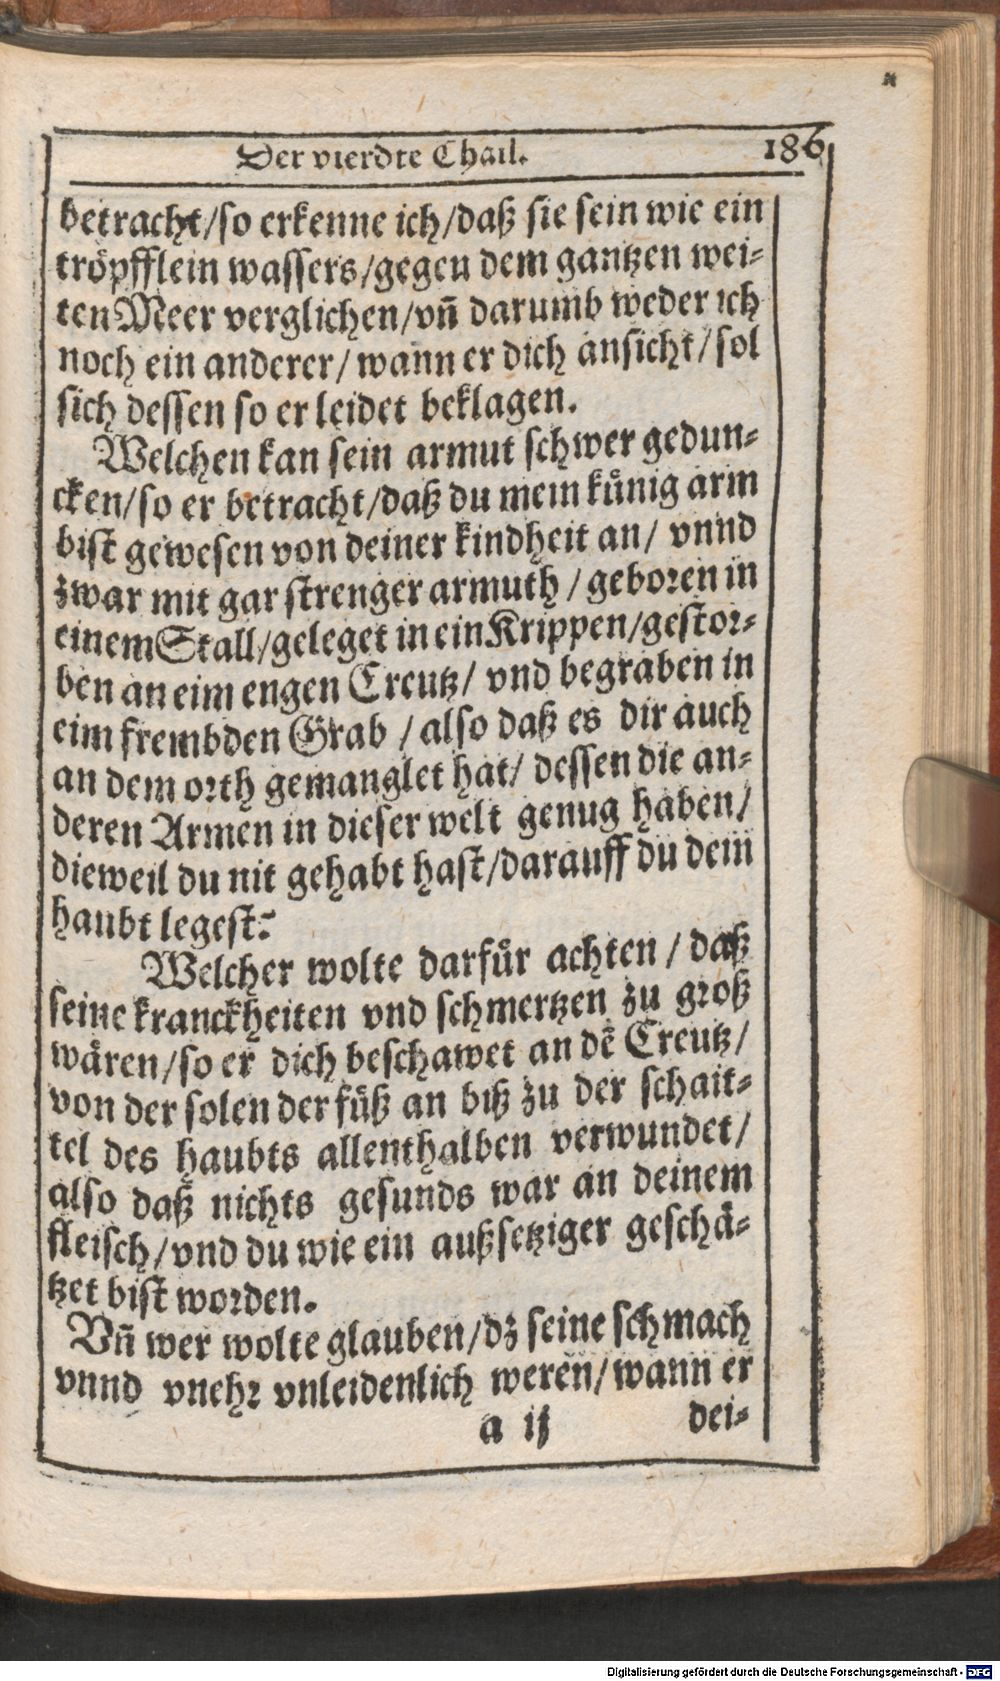 Der vierdte Thail. 186
betracht/so erkenne ich/daß sie sein wie ein
tröpfflein wassers/gegen dem gantzen wei-
ten Meer verglichen/vñ darumb weder ich
noch ein anderer/ wann er dich ansicht/ sol
sich dessen so er leidet beklagen.
Welchen kan sein armut schwer gedun-
cken/so er betracht/daß du mein künig arm
bist gewesen von deiner kindheit an/ vnnd
zwar mit gar strenger armuth / geboren in
einem Stall/geleget in ein Krippen/gestor-
ben an eim engen Creutz/ vnd begraben in
eim frembden Grab / also daß es dir auch
an dem orth gemanglet hat/ dessen die an-
deren Armen in dieser welt genug haben/
dieweil du nit gehabt hast/darauff du dein
haubt legest:
Welcher wolte darfür achten / daß
seine kranckheiten vnd schmertzen zu groß
wären/so er dich beschawet an dē Creutz/
von der solen der füß an biß zu der schait-
tel des haubts allenthalben verwundet/
also daß nichts gesunds war an deinem
fleisch/vnd du wie ein außsetziger geschä-
tzet bist worden.
Vñ wer wolte glauben/dz seine schmach
vnnd vnehr vnleidenlich weren/wann er
a ij dei-
Digitalisierung gefördert durch die Deutsche Forschungsgemeinschaft - DFG